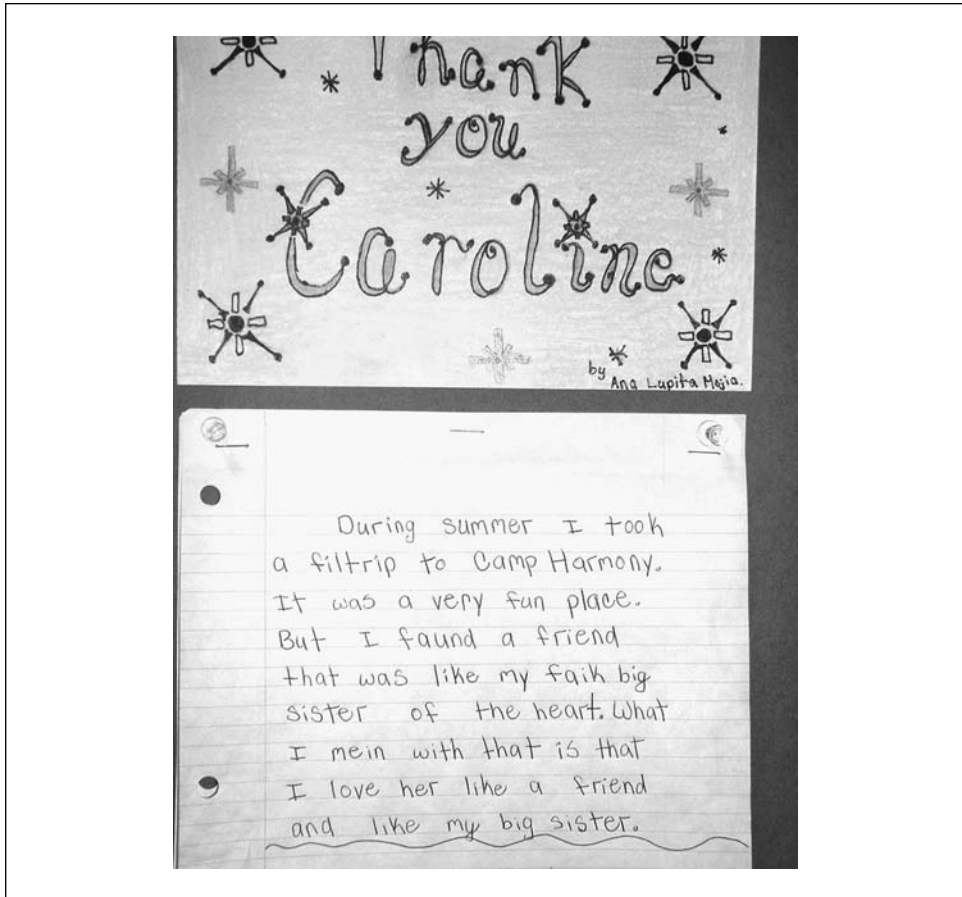 Thank
you
Caroline
by
Ana Lupita Mejia.
During summer I took
a filtrip to Camp Harmony.
It was a very fun place.
But I faund a friend
that was like my faik big
sister of the heart. What
I mein with that is that
I love her like a friend
and like my big sister.